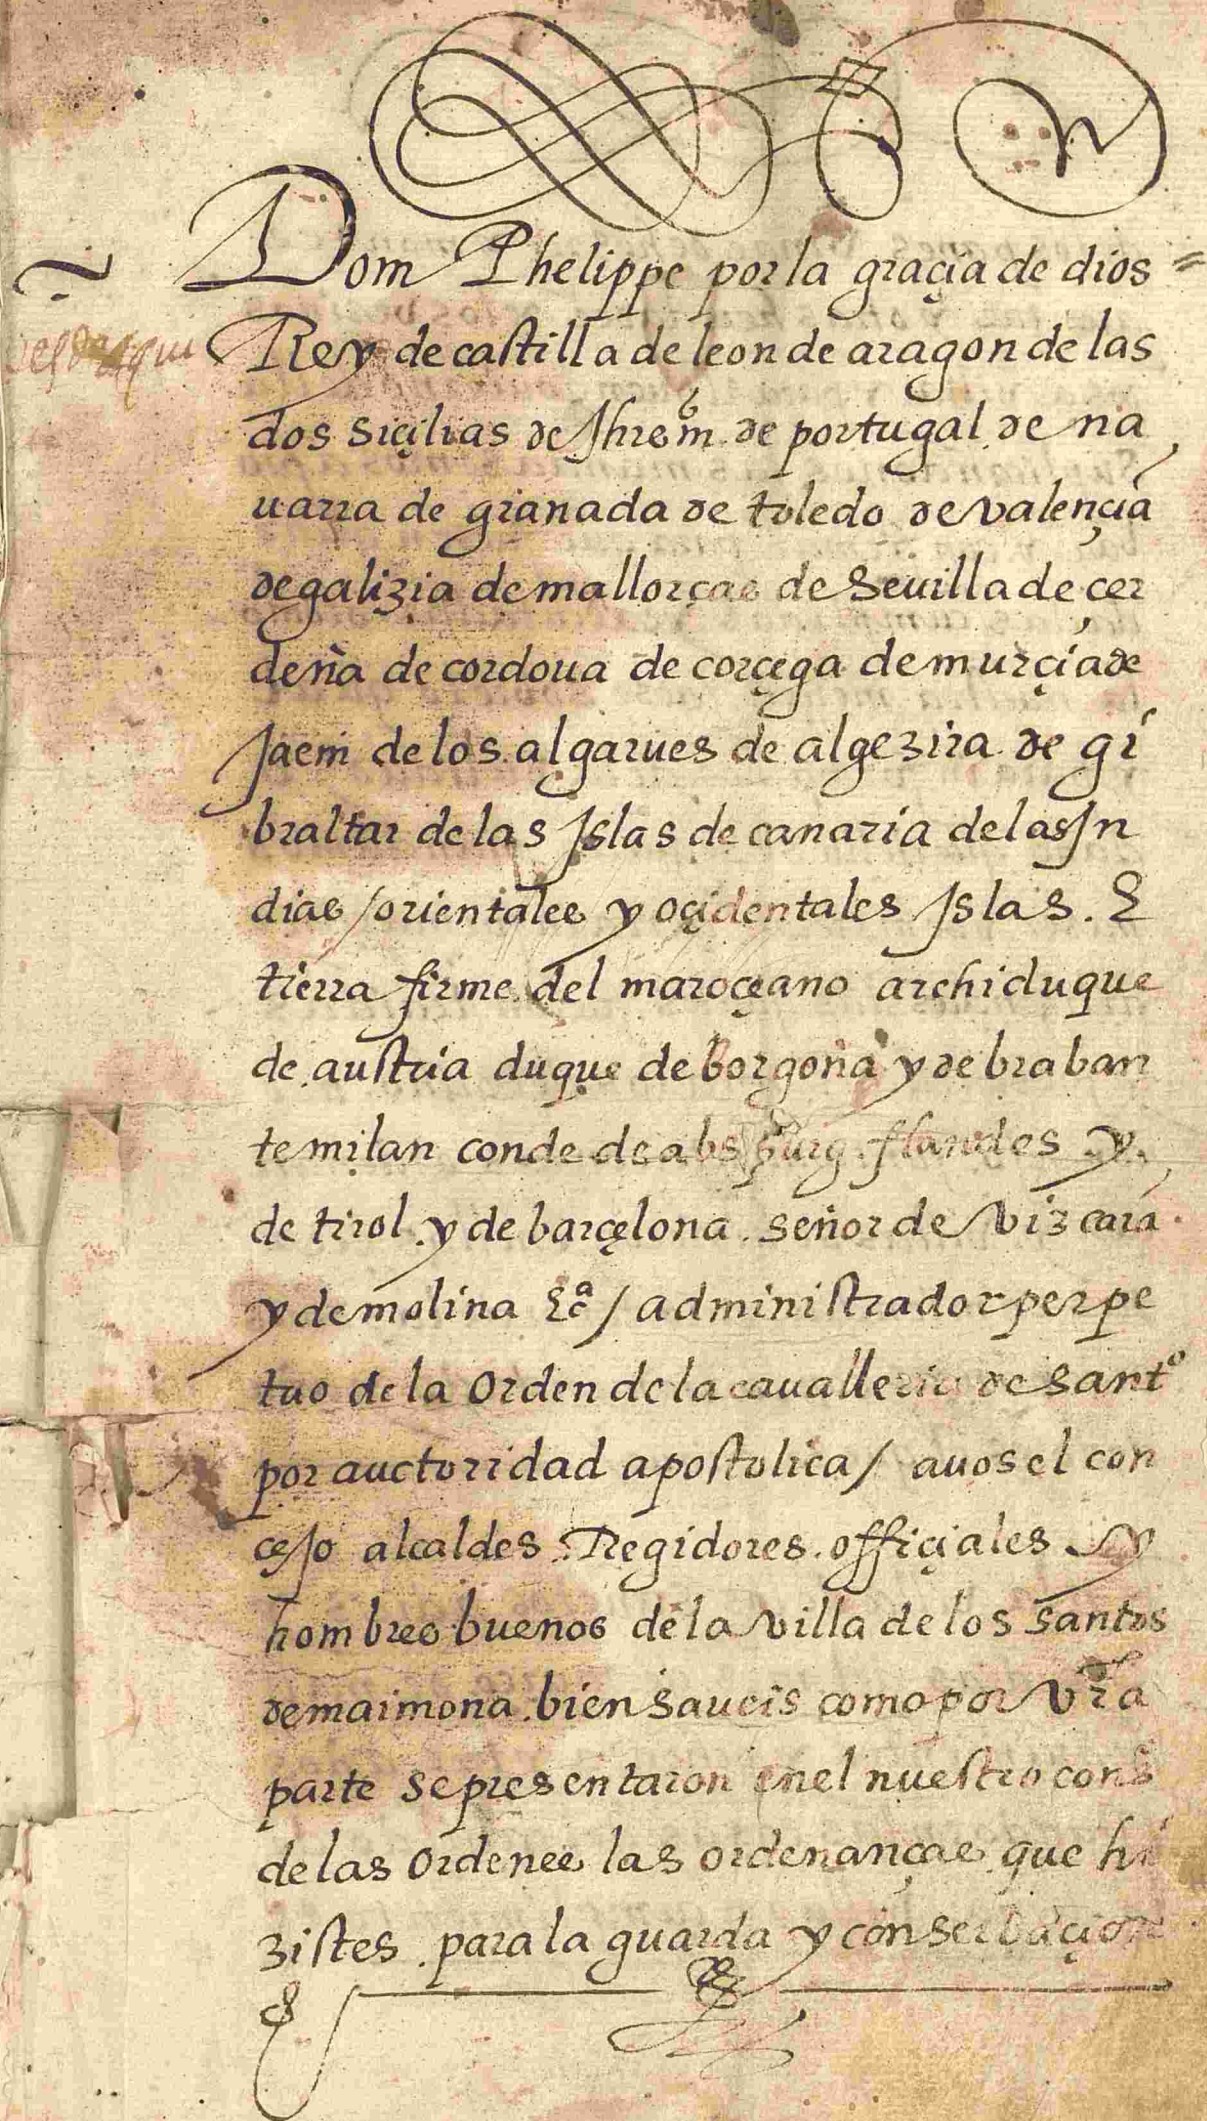 Dom Phelippe por la graçia de dios =
Rey de castilla de leon de aragon de las
dos siçilias de Jhrem de portugal de na
uarra de granada de toledo de valençia
de galizia de mallorcas de Sevilla de çer
deña de cordoua de corçega de murçia de
Jaem de los algarues de algezira de gi
braltar de las Islas de canaria de las In
dias / orientales y oçidentales Islas. E
tierra firme del maroçeano archiduque
de austria duque de borgoña y de braban
te milan conde de abspurg flandes y
de tirol y de barçelona señor de vizcaia
y de molina &cª / administrador perpe
tuo de la Orden de la caualleria de santº
por auctoridad apostolica / a vos el con
çejo alcaldes Regidores offiçiales y
hombres buenos de la villa de los santos
de maimona bien saueis como por vra
parte se presentaron en el nuestro cons
de las ordenes las ordenanças que hi
zistes para la guarda y conserbaçion